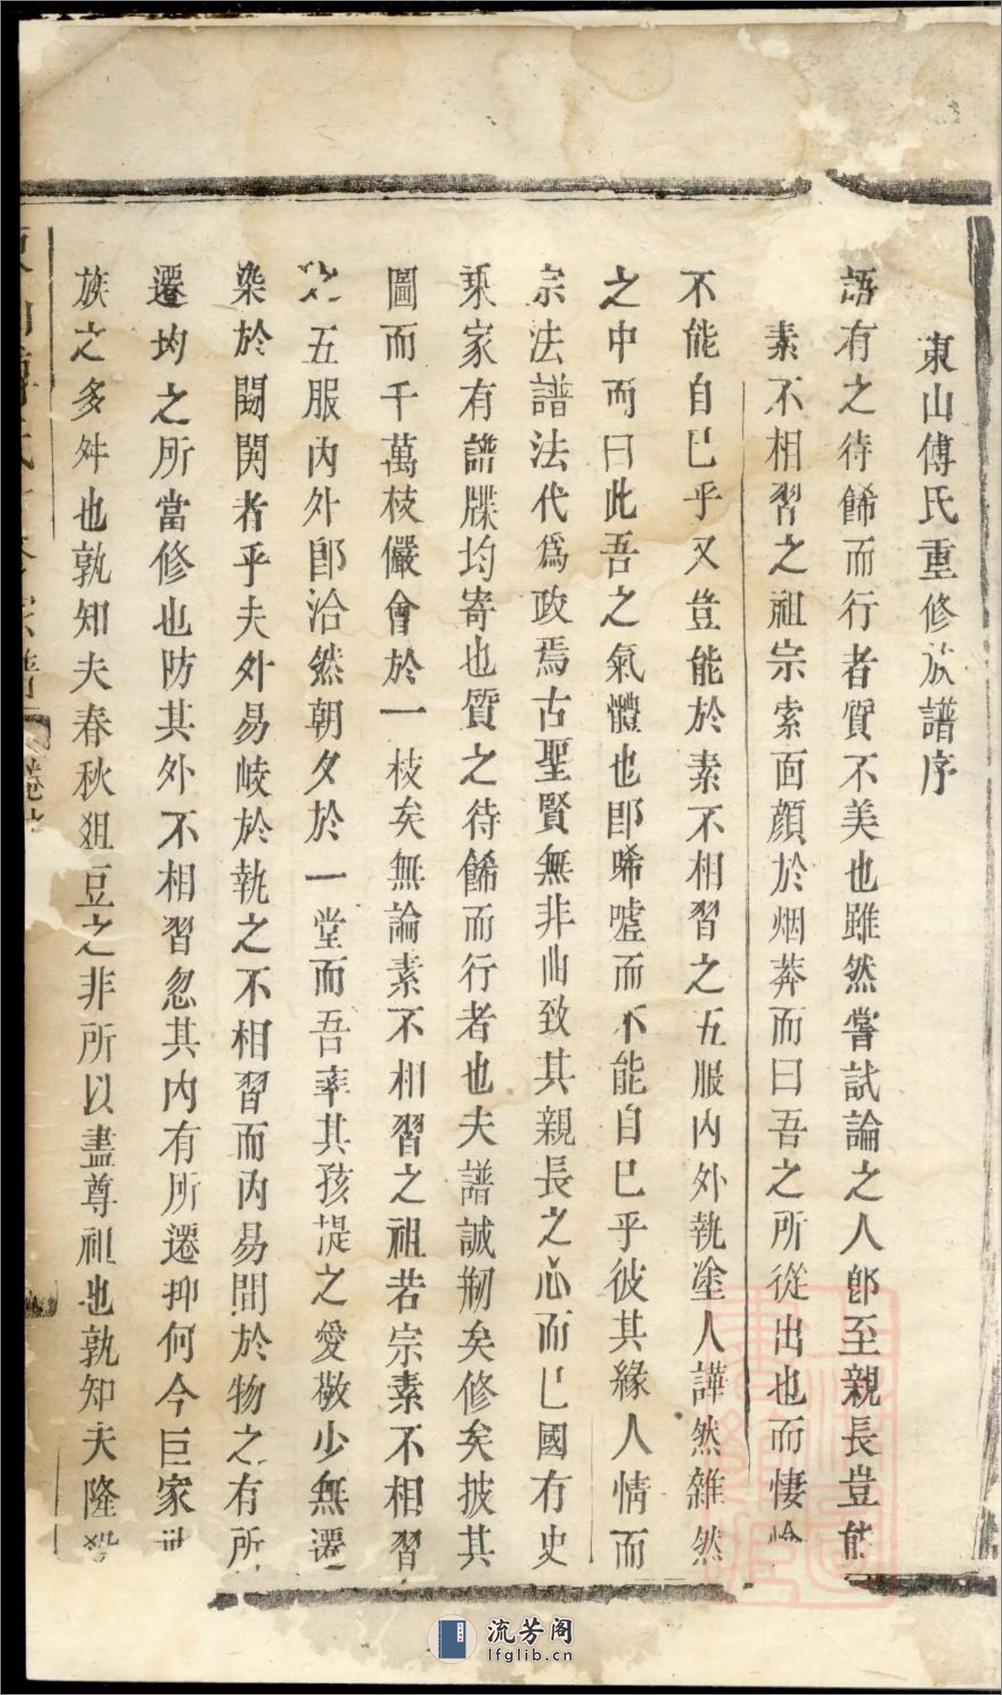 東山傅氏重修族譜序
語有之待餙而行者質不美也雖然嘗試論之人卽至親長豈能
素不相習之祖宗索面顏於烟莽而曰吾之所從出也而悽愴
不能自已乎又豈能於素不相習之五服内外執塗人譁然雜然
之中而曰此吾之氣體也卽唏噓而不能自已乎彼其緣人情而
宗法譜法代爲政焉古聖賢無非曲致其親長之心而已國有史
乘家有譜牒均寄也質之待餙而行者也夫譜誠刱矣修矣披其
圖而千萬枝儼會於一枝矣無論素不相習之祖若宗素不相習
之五服内外卽洽然朝夕於一堂而吾率其孩提之愛敬少無遷
染於鬪鬩者乎夫外易岐於執之不相習而内易間於物之有所
遷均之所當修也防其外不相習忽其内有所遷抑何今巨家
族之多舛也孰知夫春秋俎豆之非所以盡尊祖也孰知夫隆殺
流芳阁
lfglib.cn